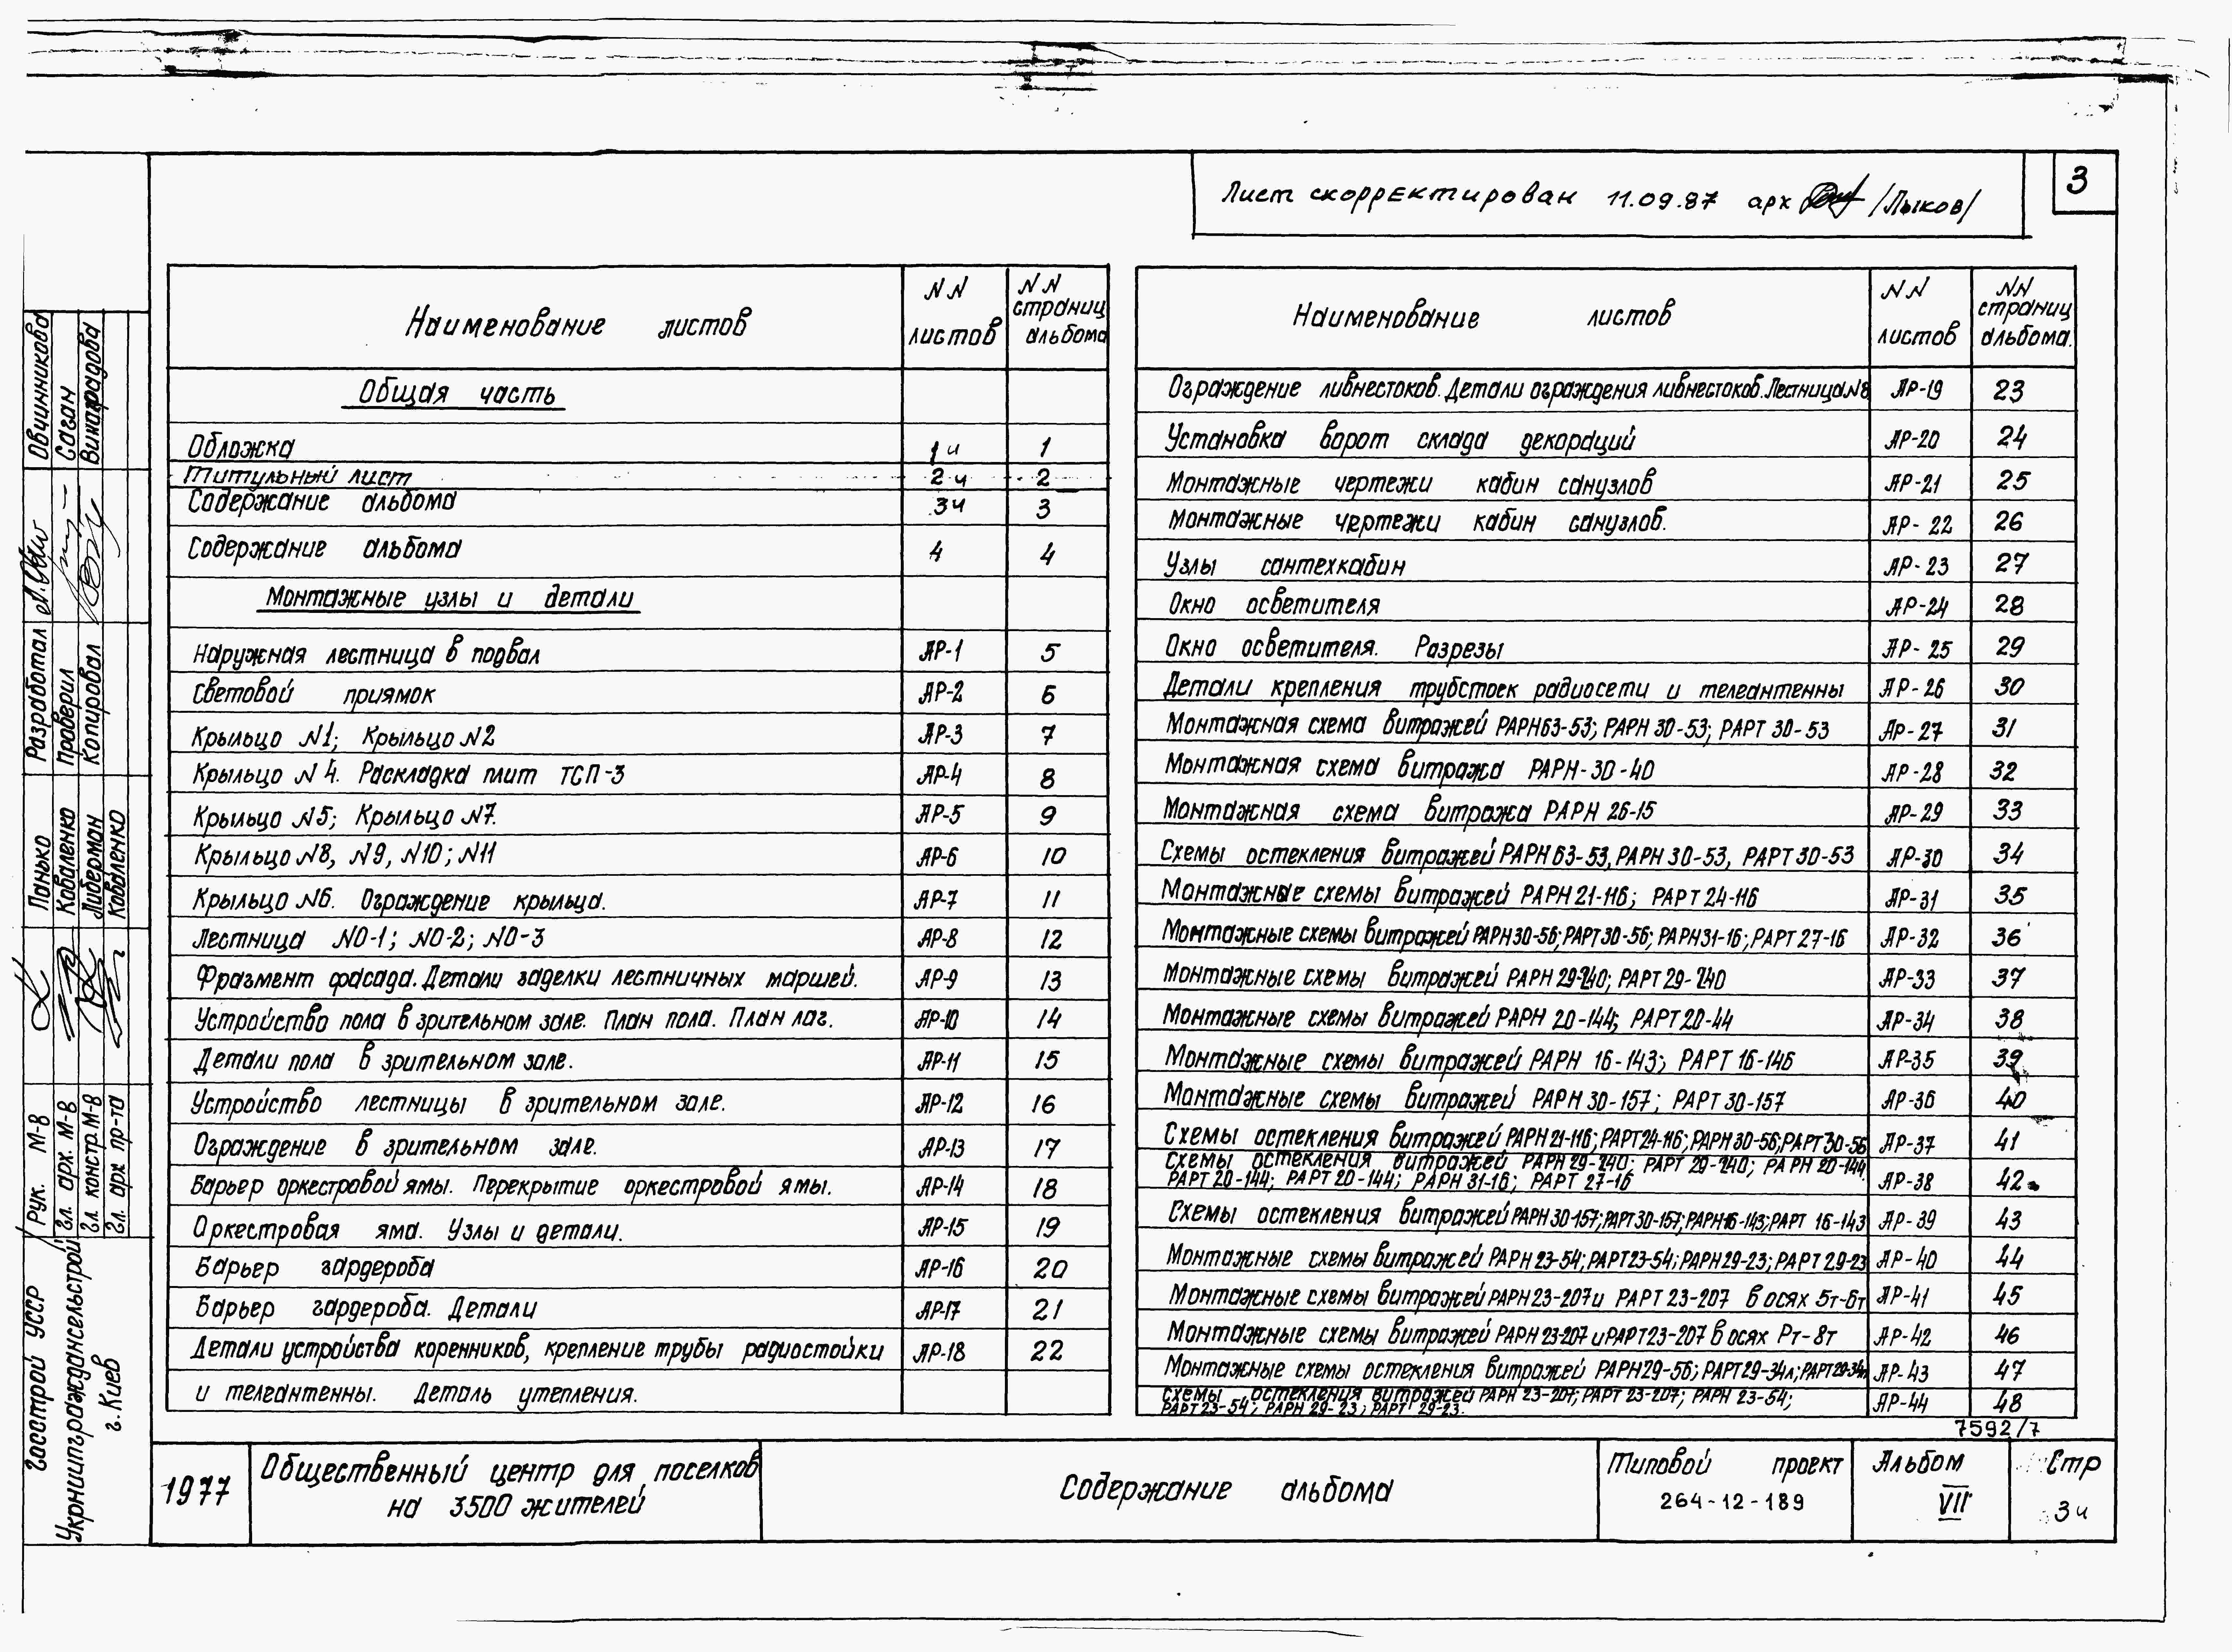 3
Лист скорректирован 11.09.87 арх /Лыков/
Наименование листов
NN листов
NN страниц альбома
Общая часть
Обложка 1и 1
Титульный лист 2и 2
Содержание альбома 3и 3
Содержание альбома 4 4
Монтажные узлы и детали
Наружная лестница в подвал АР-1 5
Световой приямок АР-2 6
Крыльцо N1; Крыльцо N2 АР-3 7
Крыльцо N4. Раскладка плит ТСП-3 АР-4 8
Крыльцо N5; Крыльцо N7. АР-5 9
Крыльцо N8, N9, N10; N11 АР-6 10
Крыльцо N6. Ограждение крыльца. АР-7 11
Лестница ЛО-1; ЛО-2; ЛО-3 АР-8 12
Фрагмент фасада. Детали заделки лестничных маршей. АР-9 13
Устройство пола в зрительном зале. План пола. План лаг. АР-10 14
Детали пола в зрительном зале. АР-11 15
Устройство лестницы в зрительном зале. АР-12 16
Ограждение в зрительном зале. АР-13 17
Барьер оркестровой ямы. Перекрытие оркестровой ямы. АР-14 18
Оркестровая яма. Узлы и детали. АР-15 19
Барьер гардероба АР-16 20
Барьер гардероба. Детали АР-17 21
Детали устройства коренников, крепление трубы радиостойки АР-18 22
и телеантенны. Деталь утепления.
Наименование листов
NN листов
NN страниц альбома.
Ограждение ливнестоков. Детали ограждения ливнестоков. Лестница N8 АР-19 23
Установка ворот склада декораций АР-20 24
Монтажные чертежи кабин санузлов АР-21 25
Монтажные чертежи кабин санузлов. АР-22 26
Узлы сантехкабин АР-23 27
Окно осветителя АР-24 28
Окно осветителя. Разрезы АР-25 29
Детали крепления трубстоек радиосети и телеантенны АР-26 30
Монтажная схема витражей РАРН63-53; РАРН 30-53; РАРТ 30-53 АР-27 31
Монтажная схема витража РАРН-30-40 АР-28 32
Монтажная схема витража РАРН 26-15 АР-29 33
Схемы остекления витражей РАРН 63-53, РАРН 30-53, РАРТ 30-53 АР-30 34
Монтажные схемы витражей РАРН 21-116; РАРТ 24-116 АР-31 35
Монтажные схемы витражей РАРН30-56; РАРТ30-56; РАРН31-16; РАРТ 27-16 АР-32 36
Монтажные схемы витражей РАРН 29-240; РАРТ 29-240 АР-33 37
Монтажные схемы витражей РАРН 20-144; РАРТ 20-44 АР-34 38
Монтажные схемы витражей РАРН 16-143; РАРТ 16-146 АР-35 39
Монтажные схемы витражей РАРН 30-157; РАРТ 30-157 АР-36 40
Схемы остекления витражей РАРН 21-116; РАРТ24-116; РАРН 30-56; РАРТ 30-56 АР-37 41
Схемы остекления витражей РАРН 29-240; РАРТ 29-240; РАРН 20-144
РАРТ 20-144; РАРТ 20-144; РАРН 31-16; РАРТ 27-16 АР-38 42
Схемы остекления витражей РАРН 30-157; РАРТ30-157; РАРН16-143; РАРТ 16-143 АР-39 43
Монтажные схемы витражей РАРН 23-54; РАРТ23-54; РАРН29-23; РАРТ 29-23 АР-40 44
Монтажные схемы витражей РАРН23-207 и РАРТ 23-207 в осях 5т-6т АР-41 45
Монтажные схемы витражей РАРН 23-207 и РАРТ23-207 в осях Рт-8т АР-42 46
Монтажные схемы остекления витражей РАРН29-56; РАРТ29-34л; РАРТ29-34п АР-43 47
Схемы остекления витражей РАРН 23-207; РАРТ 23-207; РАРН 23-54;
РАРТ23-54; РАРН 29-23; РАРТ 29-23. АР-44 48
7592/7
1977
Общественный центр для поселков
на 3500 жителей
Содержание альбома
Типовой проект
264-12-189
Альбом
VII
Стр
3и
Госстрой УССР
Укрниипграждансельстрой
г. Киев
Рук. М-В Панько
Гл. арх. М-В Коваленко
Гл. констр. М-В Либерман
Гл. арх пр-та Коваленко
Разработал Овчинникова
Проверил Саган
Копировал Виноградова